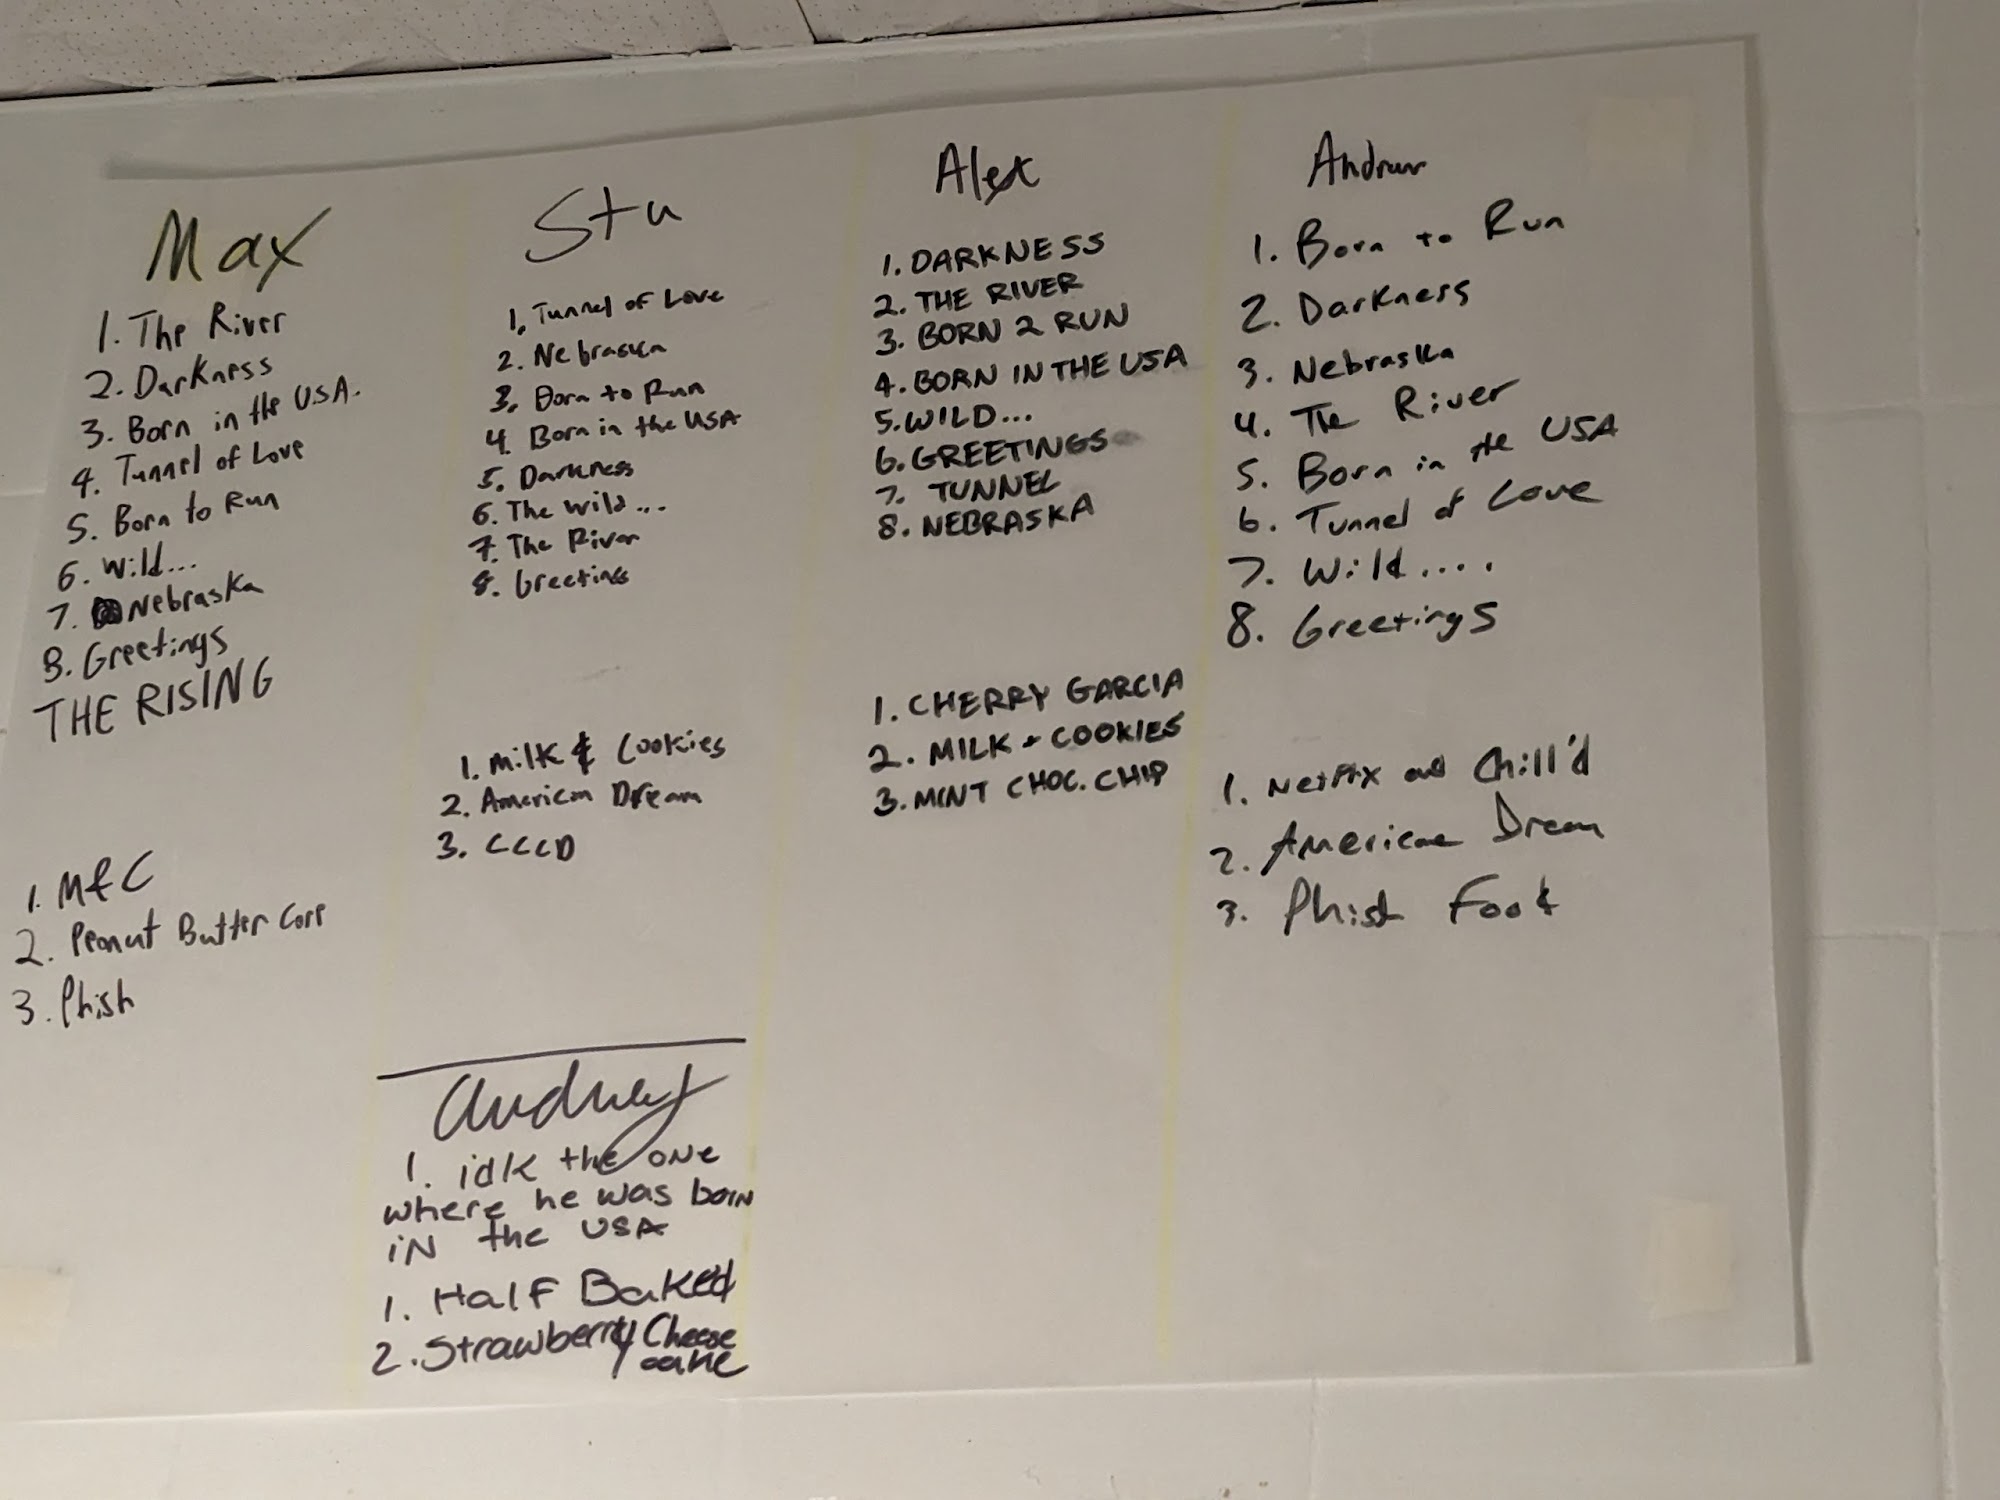 Max
1. The River
2. Darkness
3. Born in the U.S.A.
4. Tunnel of Love
5. Born to Run
6. Wild...
7. Nebraska
8. Greetings
THE RISING
1. M&C
2. Peanut Butter Core
3. Phish
Stu
1. Tunnel of Love
2. Nebraska
3. Born to Run
4. Born in the USA
5. Darkness
6. The Wild...
7. The River
8. Greetings
1. Milk & Cookies
2. American Dream
3. CCCD
Audrey
1. idk the one
where he was born
in the USA
1. Half Baked
2. Strawberry Cheese
cake
Alex
1. DARKNESS
2. THE RIVER
3. BORN 2 RUN
4. BORN IN THE USA
5. WILD...
6. GREETINGS
7. TUNNEL
8. NEBRASKA
1. CHERRY GARCIA
2. MILK + COOKIES
3. MINT CHOC. CHIP
Andrew
1. Born to Run
2. Darkness
3. Nebraska
4. The River
5. Born in the USA
6. Tunnel of Love
7. Wild....
8. Greetings
1. Netflix and Chill'd
2. Americone Dream
3. Phish Food